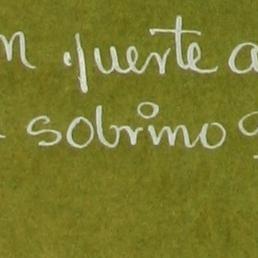 n fuerte a
sobrino